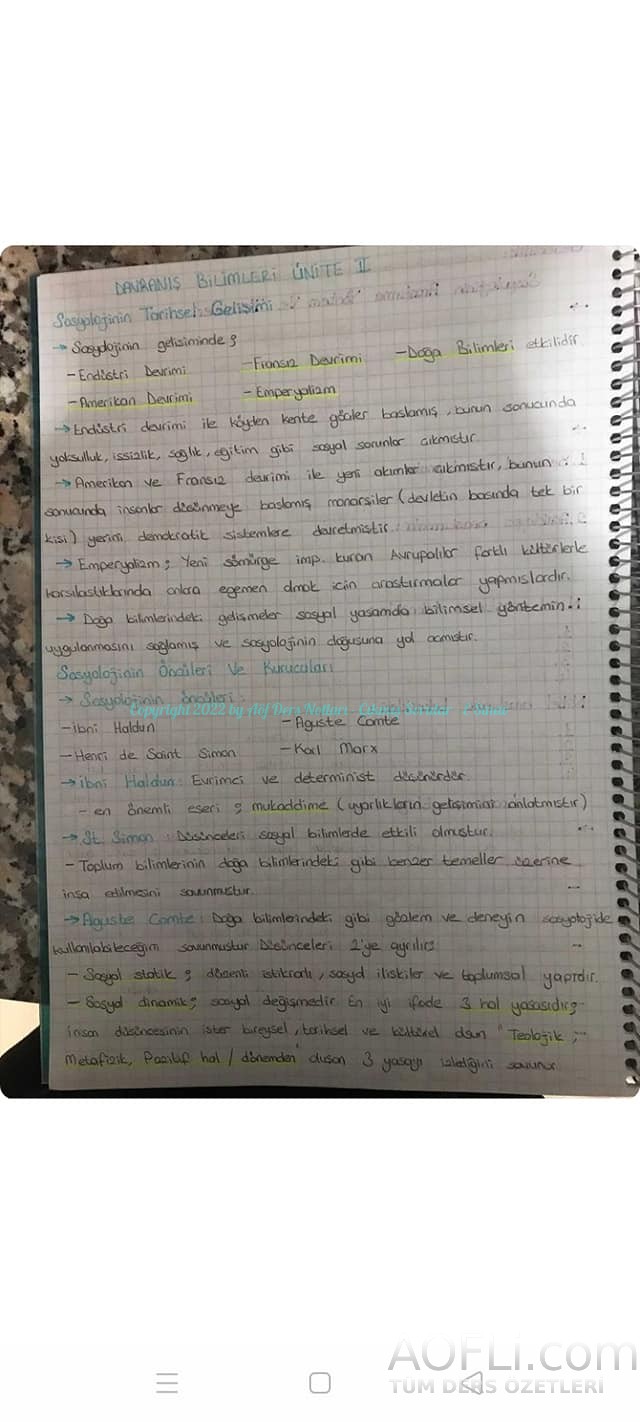 DAVRANIŞ BİLİMLERİ ÜNİTE II
Sosyolojinin Tarihsel Gelişimi
→ Sosyolojinin gelisiminde ;
- Endüstri Devrimi - Fransız Devrimi - Doğa Bilimleri etkilidir
- Amerikan Devrimi - Emperyalizm
→ Endüstri devrimi ile köyden kente göçler baslamış, bunun sonucunda
yoksulluk, issizlik, sağlık, eğitim gibi sosyal sorunlar cıkmıstır.
→ Amerikan ve Fransız devrimi ile yeni akımlar cıkmıstır, bunun
sonucunda insanlar düsünmeye baslamış monarsiler (devletin basında tek bir
kisi) yerini demokratik sistemlere devretmistir.
→ Emperyalizm ; Yeni sömürge imp. kuran Avrupalılar farklı kültürlerle
karsılastıklarında onlara egemen olmak icin arastırmalar yapmıslardır.
→ Doğa bilimlerindeki gelismeler sosyal yasamda bilimsel yöntemin
uygulanmasını sağlamış ve sosyolojinin doğusuna yol acmıstır.
Sosyolojinin Öncüleri Ve Kurucuları
→ Sosyolojinin öncüleri :
Copyright 2022 by Aöf Ders Notları - Çıkmış Sorular
- ibni Haldun - Aguste Comte
- Henri de Saint Simon - Karl Marx
→ ibni Haldun : Evrimci ve determinist düsünürdür.
- en önemli eseri ; mukaddime (uyarlıkların gelisimini anlatmıstır)
→ St. Simon : Düsünceleri sosyal bilimlerde etkili olmustur.
- Toplum bilimlerinin doğa bilimlerindeki gibi benzer temeller üzerine
insa edilmesini savunmustur.
→ Aguste Comte : Doğa bilimlerindeki gibi gözlem ve deneyin sosyolojide
kullanılabileceğini savunmustur Düsünceleri 2'ye ayrılır;
- Sosyal statik ; düzenli istikrarlı, sosyal iliskiler ve toplumsal yapıdır.
- Sosyal dinamik ; sosyal değismedir En iyi ifade 3 hal yasasıdır ;
insan düsüncesinin ister bireysel, tarihsel ve kültürel olsun "Teolojik,
Metafizik, Pozitif hal / dönemden" olusan 3 yasayı izlediğini savunur.
AOFLi.com
TÜM DERS ÖZETLERİ